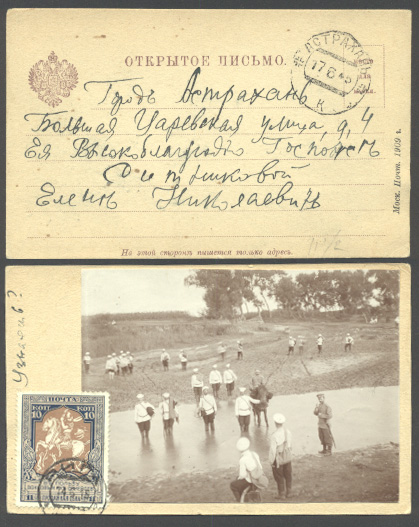 ОТКРЫТОЕ ПИСЬМО.
АСТРАХАНЬ
Городъ Астрахань
Большая Царевская улица, д. 4
Ея Высокоблагородію Госпожѣ
Ситниковой
Еленѣ Николаевнѣ
На этой сторонѣ пишется только адресъ.
Моск. Почт. 1909 г.
Узнаешь?
ПОЧТА
КОП 10 КОП
10